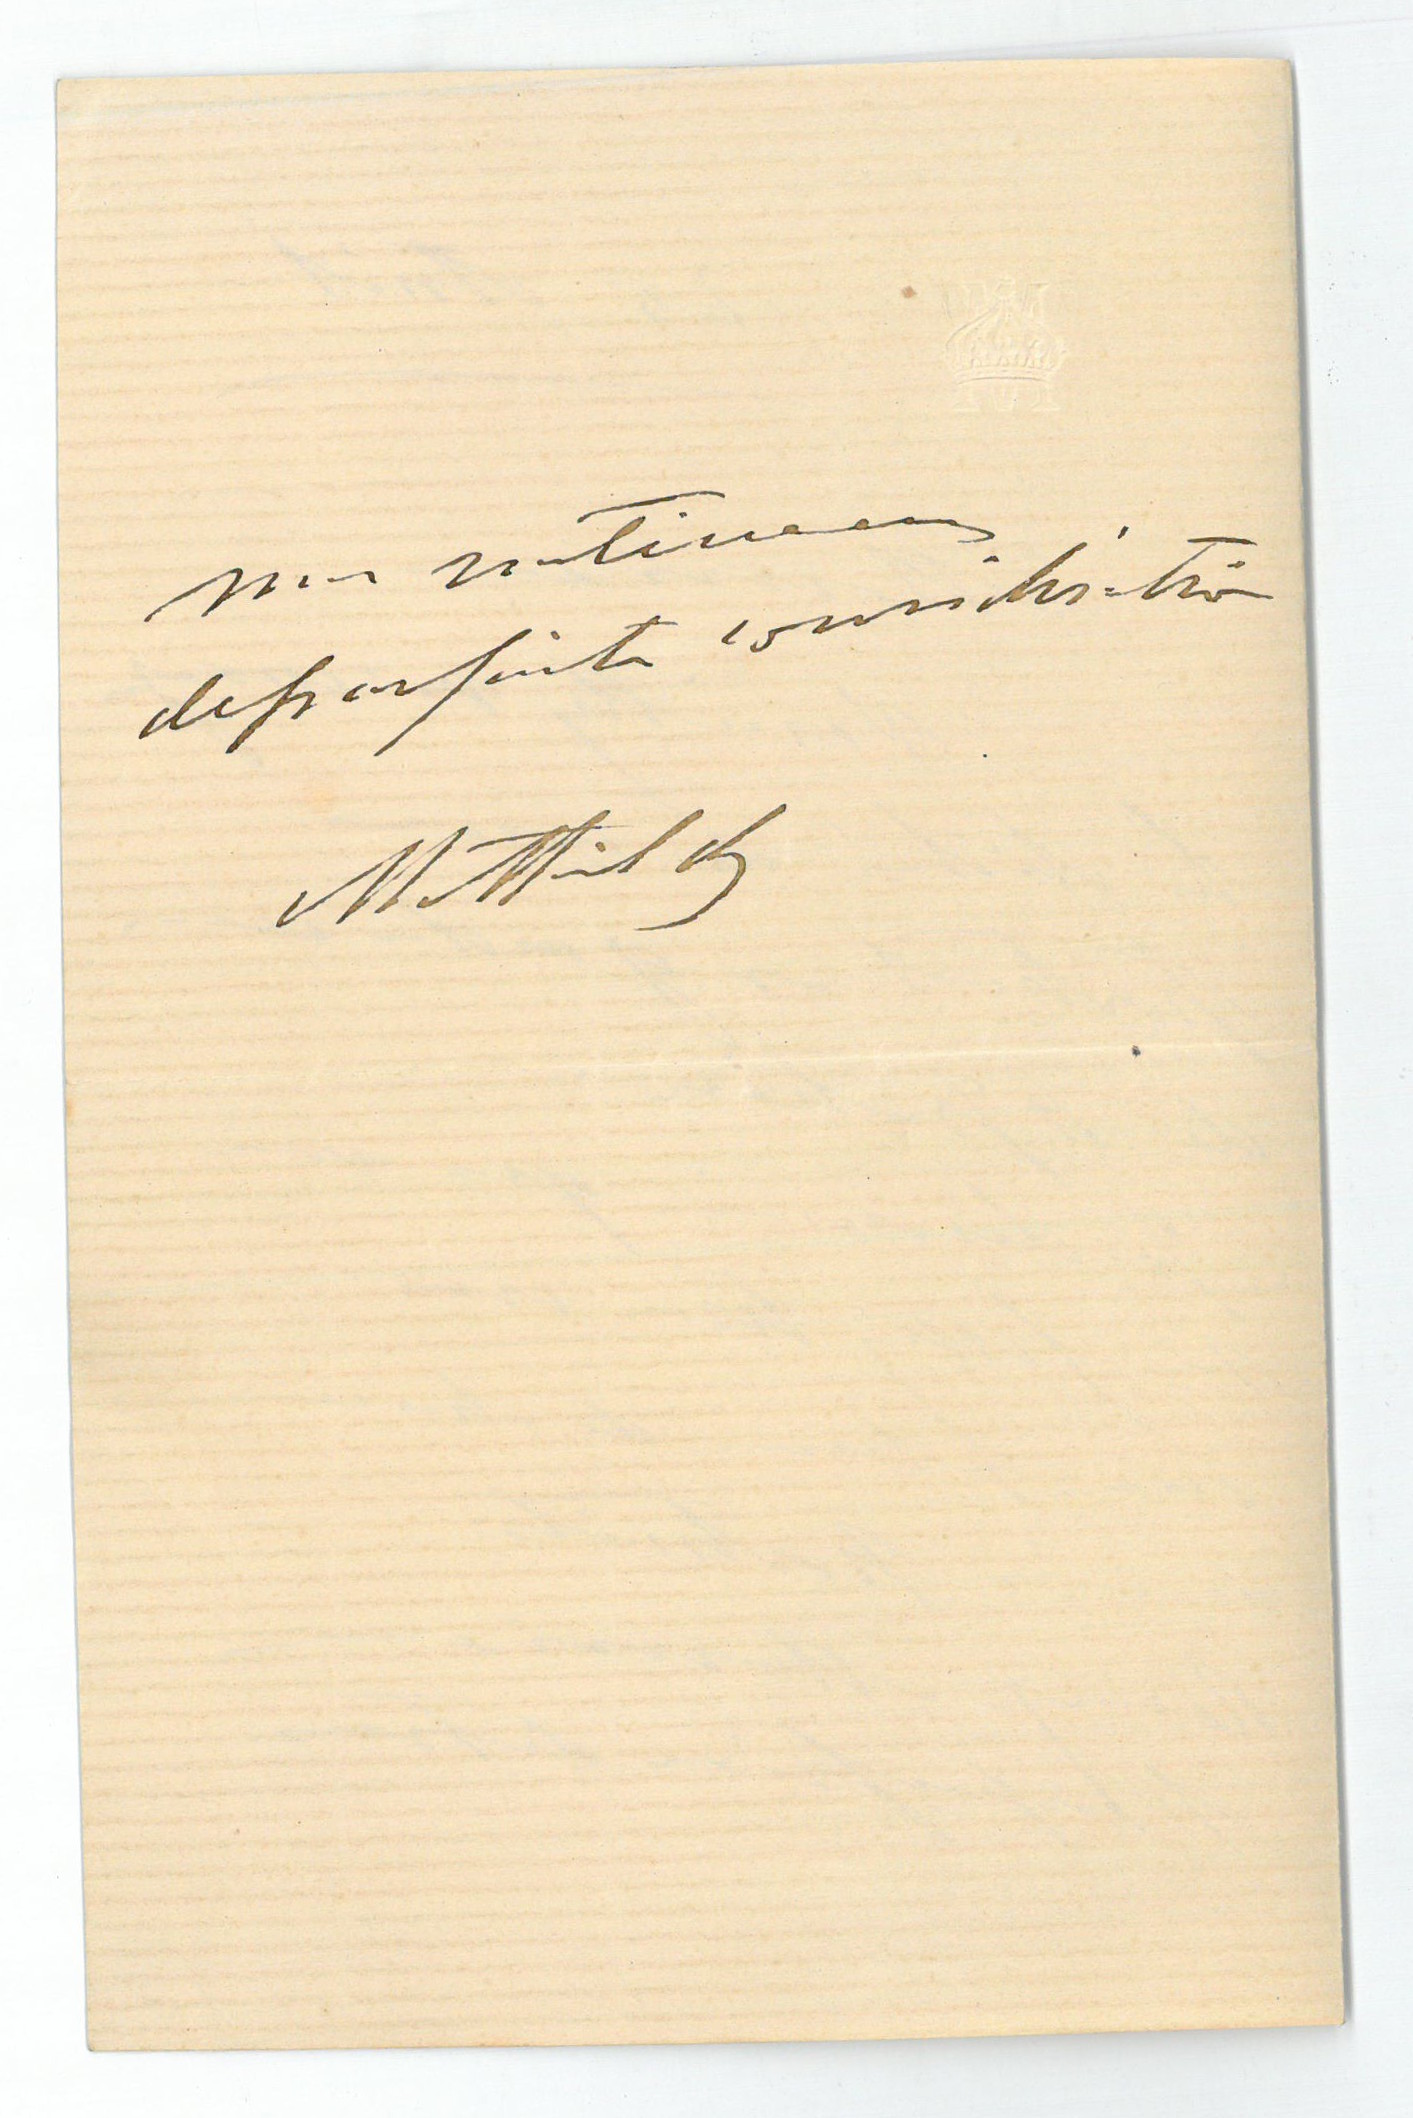 mes sentiments
de parfaite considération
Mathilde